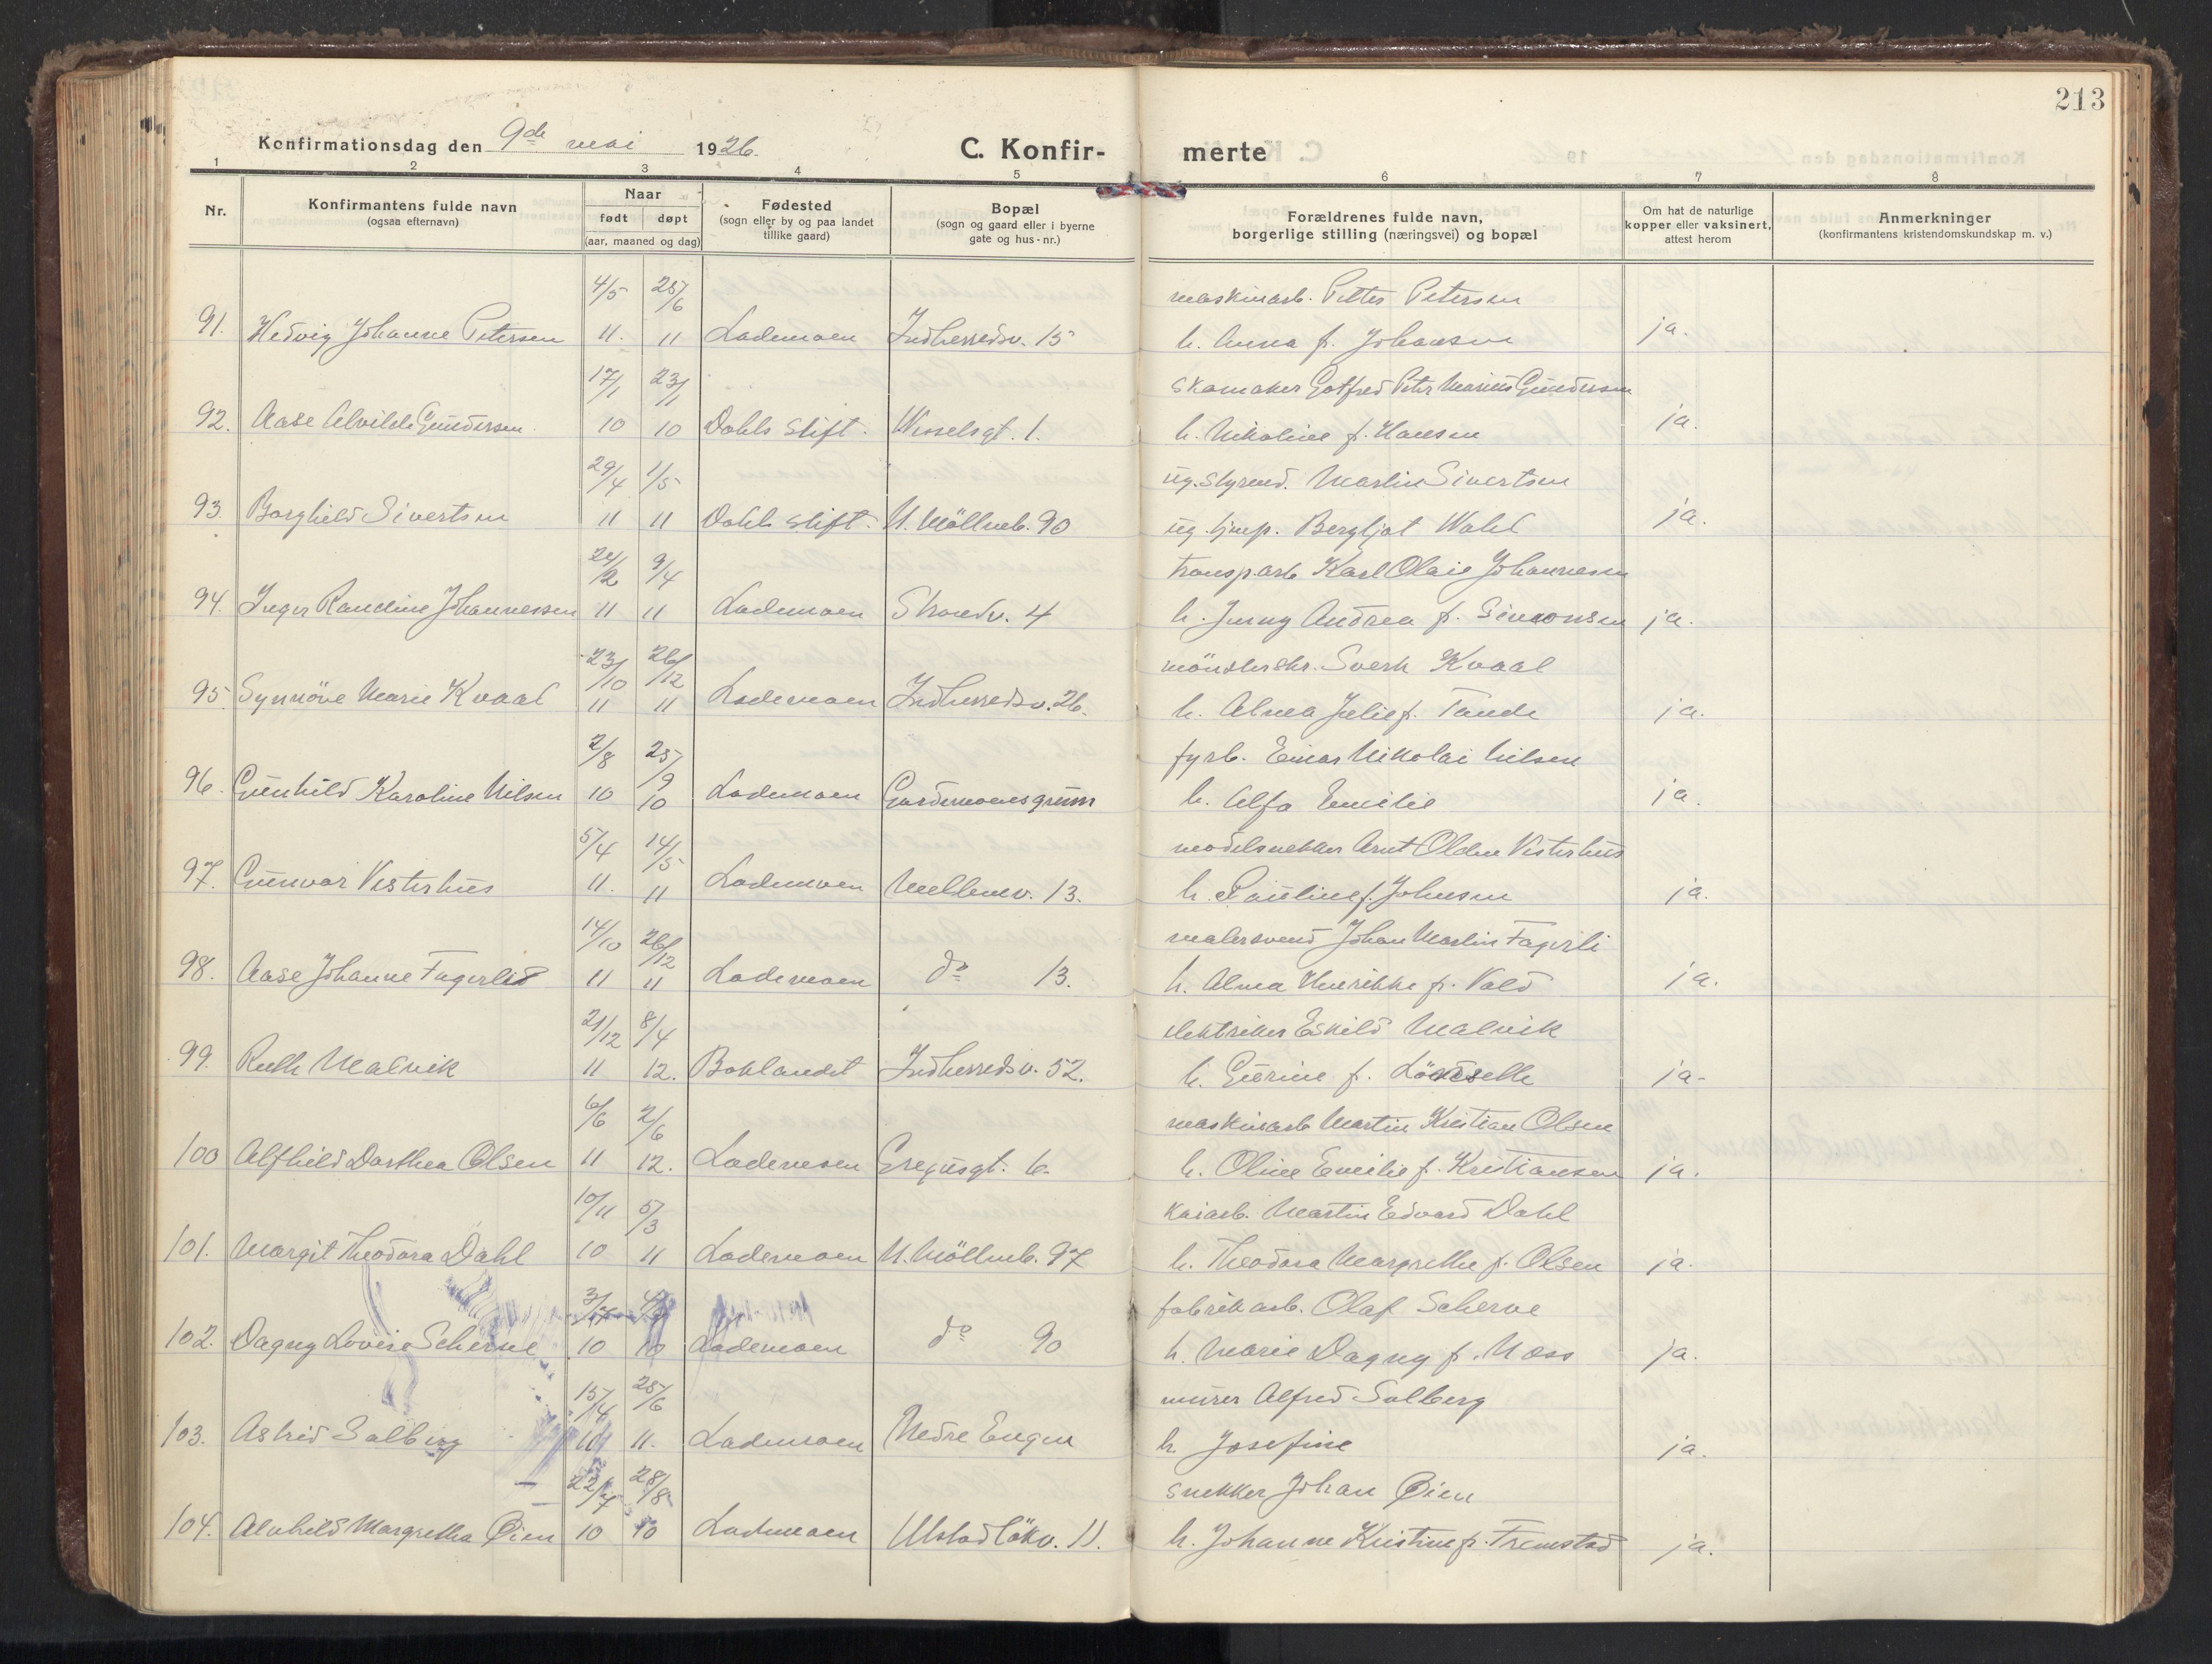 213
Konfirmationsdag den 9de mai 1926.
C. Konfir- merte
1 2 3 4 5 6 7 8
Nr.
Konfirmantens fulde navn
(ogsaa efternavn)
Naar
født døpt
(aar, maaned og dag)
Fødested
(sogn eller by og paa landet
tillike gaard)
Bopæl
(sogn og gaard eller i byerne
gate og hus-nr.)
Forældrenes fulde navn,
borgerlige stilling (næringsvei) og bopæl
Om hat de naturlige
kopper eller vaksinert,
attest herom
Anmerkninger
(konfirmantens kristendomskundskap m. v.)
4/5 25/6 maskinarb. Petter Petersen
91. Hedvig Johanne Petersen 11. 11 Lademoen Indherredsv. 15 h. Anna f. Johansen ja.
17/1 23/1 skomaker Gotfred Peter Marius Gundersen
92. Aase Alvilde Gundersen 10 10 Dahls Stift. Wesselsgt. 1. h. Nikoline f. Hansen ja.
29/4 1/5 ug. styrmd. Martin Sivertsen
93. Borghild Sivertsen 11 11 Dahls Stift. N. Möllenb. 90 ug. tjmp. Bergljot Wahl ja.
24/2 9/4 transp.arb Karl Olaie Johannesen
94. Inger Randine Johannessen 11 11 Lademoen Strandv. 4 h. Jenny Andrea f. Simonsen ja.
23/10 26/12 mönsterskr. Sverk Kvaal
95. Synnöve Marie Kvaal 11 11 Lademoen Indherredsv. 26. h. Alma Julie f. Tande ja.
2/8 25/9 fyrb. Einar Nikolai Nilsen
96. Gunhild Karoline Nilsen 10 10 Lademoen h. Alfa Emilie ja.
5/4 14/5 modelsnekker Arnt Olden Vesterhus
97. Gunvor Vesterhus 11. 11 Lademoen Mellemv. 13. h. Pauline f. Johnsen ja.
14/10 26/12 malersvend Johan Martin Fagerli
98. Aase Johanne Fagerli 11 11 Lademoen do 13. h. Alma Henrikke f. Vold ja.
21/12 8/4 elektriker Eskild Malvik
99. Ruth Malvik 11 12. Baklandet Indherredsv. 52. h. Gurine f. ja-
6/6 2/6 maskinarb Martin Kristian Olsen
100 Alfhild Dorthea Olsen 11 12. Lademoen Gregusgt. 6. h. Oline Emilie f. Kristiansen ja.
10/11 5/3 Kaiarb. Martin Edvard Dahl
101. Margit Theodora Dahl 10 11 Lademoen N. Möllenb. 97 h. Theodora Margrethe f. Olsen ja.
fabrikarb. Olaf Scherve
102. Dagny Lovise Scherve 10 10 Lademoen do 90 h. Marie Dagny f. Moss ja.
15/4 25/6 murer Alfred Solberg
103. Astrid Solberg 11 11. Lademoen Nedre Engen h. Josefine ja.
22/7 28/8 snekker Johan Øien
104. Alvhild Margretha Øien 10 10 Lademoen Ulstadlökv. 11. h. Johanne Kristine f. Fremstad ja.